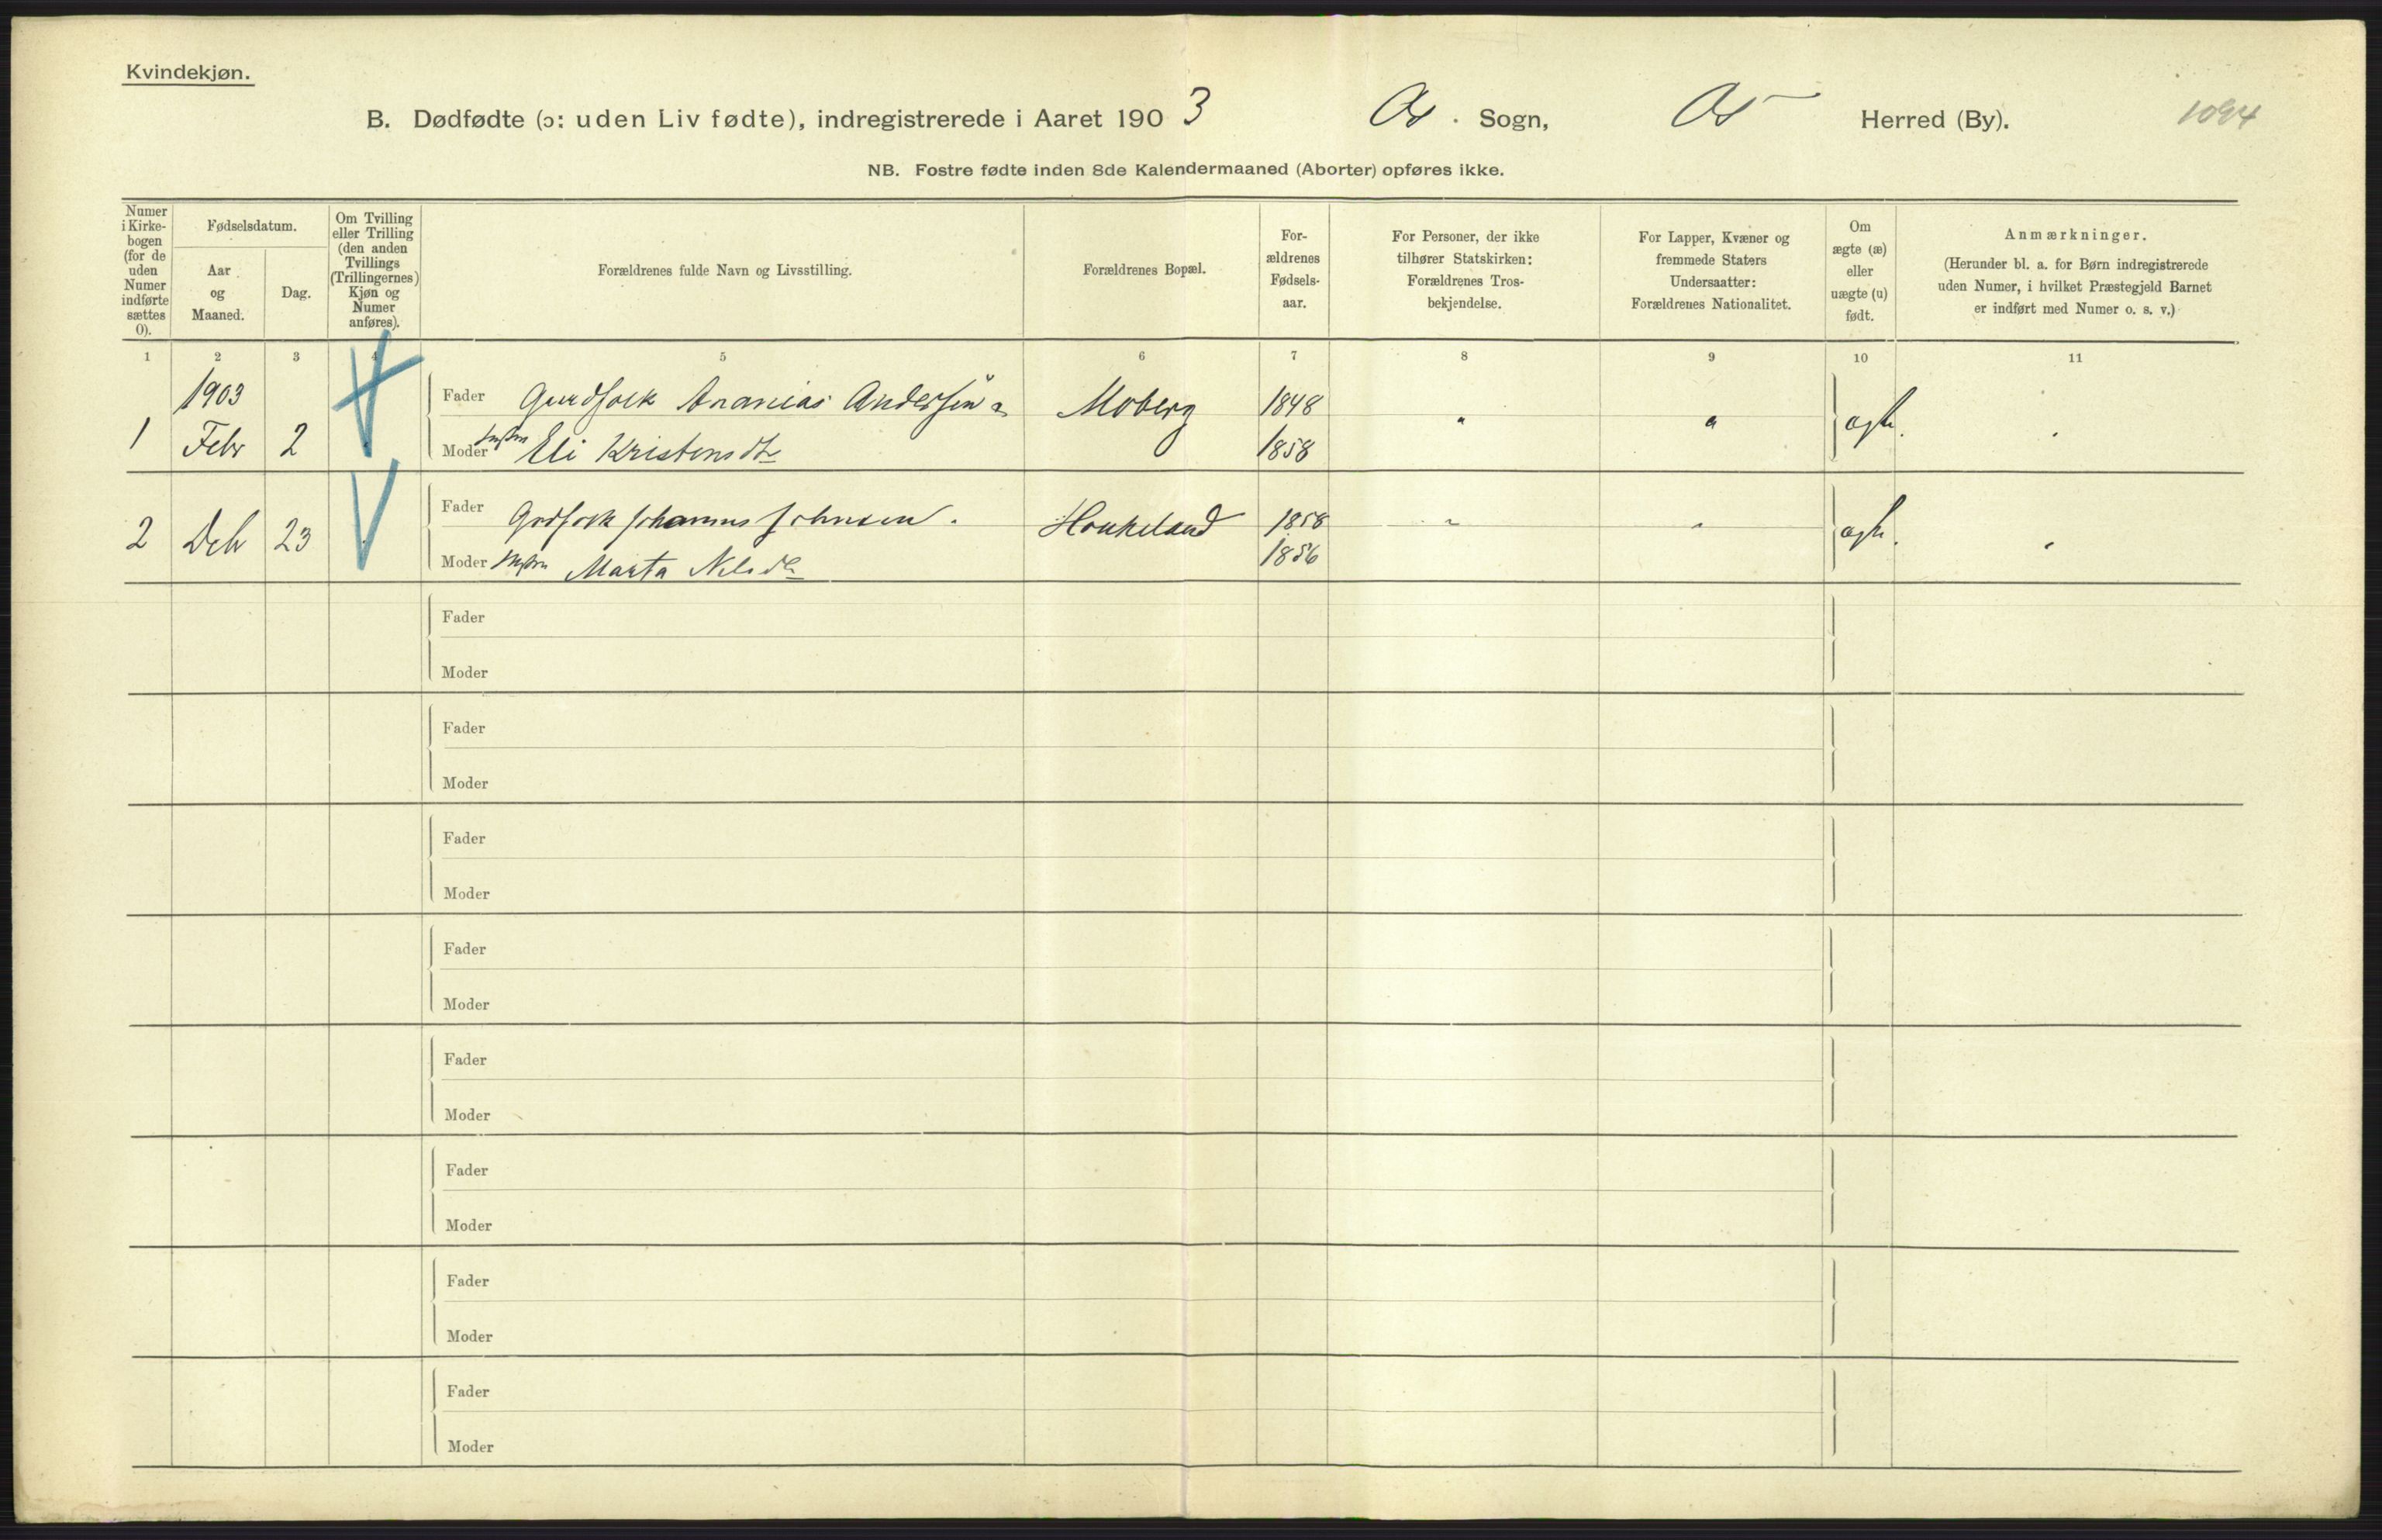 Kvindekjøn.
B. Dødfødte (ɔ: uden Liv fødte), indregistrerede i Aaret 1903 Os. Sogn, Os Herred (By). 1094
NB. Fostre fødte inden 8de Kalendermaaned (Aborter) opføres ikke.
Numer i Kirke-bogen (for de uden Numer indførte sættes 0).
Fødselsdatum.
Aar og Maaned.
Dag.
Om Tvilling eller Trilling (den anden Tvillings (Trillingernes) Kjøn og Numer anføres).
Forældrenes fulde Navn og Livsstilling.
Forældrenes Bopæl.
For-ældrenes Fødsels-aar.
For Personer, der ikke tilhører Statskirken: Forældrenes Tros-bekjendelse.
For Lapper, Kvæner og fremmede Staters Undersaatter: Forældrenes Nationalitet.
Om ægte (æ) eller uægte (u) født.
Anmærkninger.
(Herunder bl. a. for Børn indregistrerede uden Numer, i hvilket Præstegjeld Barnet er indført med Numer o. s. v.)
1 2 3 4 5 6 7 8 9 10 11
1903 Fader Gurdfolk Ananias Andersen Moberg 1848 " "
1 Febr 2 Moder Eli Kristensdtr 1858 ægte.
Fader Grdfolk Johannes Johnsen. Haukeland 1858 " "
2 Debr 23 Moder Marta Nilsdtr 1856 ægte. "
Fader
Moder
Fader
Moder
Fader
Moder
Fader
Moder
Fader
Moder
Fader
Moder
Fader
Moder
Fader
Moder